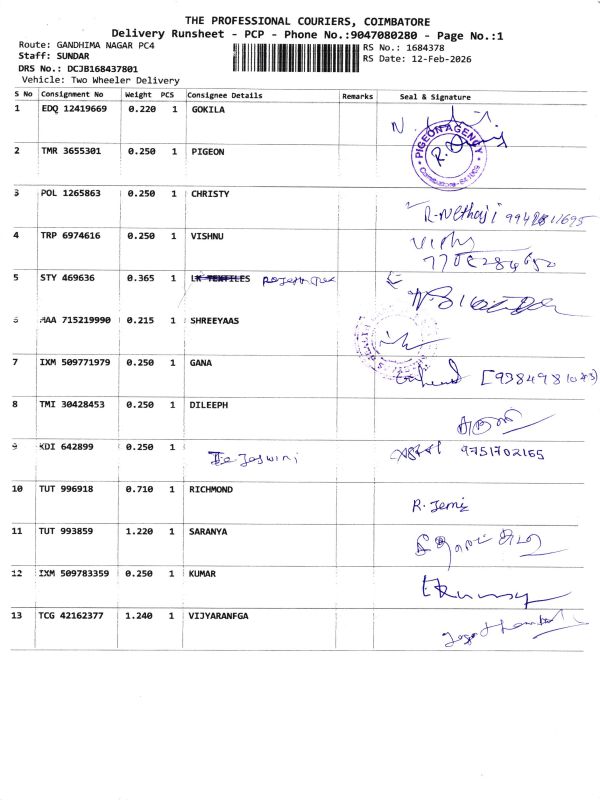 THE PROFESSIONAL COURIERS, COIMBATORE
Delivery Runsheet - PCP - Phone No.:9047080280 - Page No.:1
Route: GANDHIMA NAGAR PC4
RS No.: 1684378
Staff: SUNDAR
RS Date: 12-Feb-2026
DRS No.: DCJB168437801
Vehicle: Two Wheeler Delivery
S No Consignment No Weight PCS Consignee Details Remarks Seal & Signature
1 EDQ 12419669 0.220 1 GOKILA
2 TMR 3655301 0.250 1 PIGEON
PIGEON AGENCY
3 POL 1265863 0.250 1 CHRISTY R-Nethaji
4 TRP 6974616 0.250 1 VISHNU
5 STY 469636 0.365 1 LK TEXTILES
6 HAA 715219990 0.215 1 SHREEYAAS
7 IXM 509771979 0.250 1 GANA
8 TMI 30428453 0.250 1 DILEEPH
9 KDI 642899 0.250 1 9751702165
10 TUT 996918 0.710 1 RICHMOND
11 TUT 993859 1.220 1 SARANYA
12 IXM 509783359 0.250 1 KUMAR
13 TCG 42162377 1.240 1 VIJYARANFGA